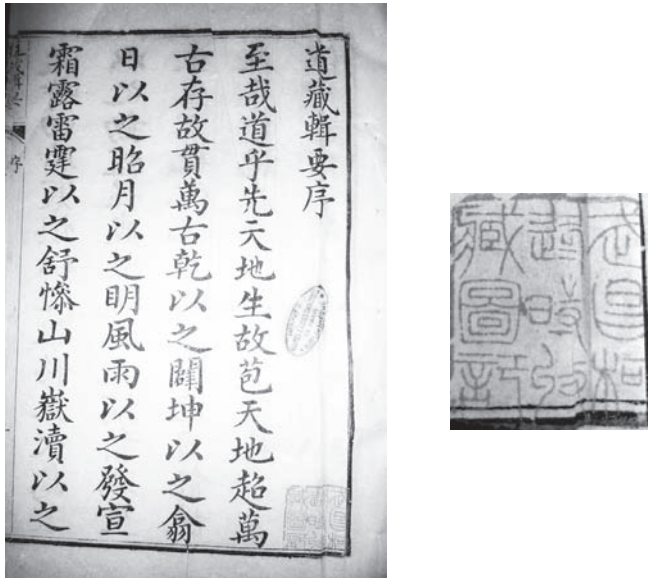 道藏輯要序
至哉道乎先天地生故苞天地超萬
古存故貫萬古乾以之闢坤以之翕
日以之昭月以之眀風雨以之發宣
霜露雷霆以之舒慘山川嶽瀆以之
序
武昌柯
逢時收
藏圖記